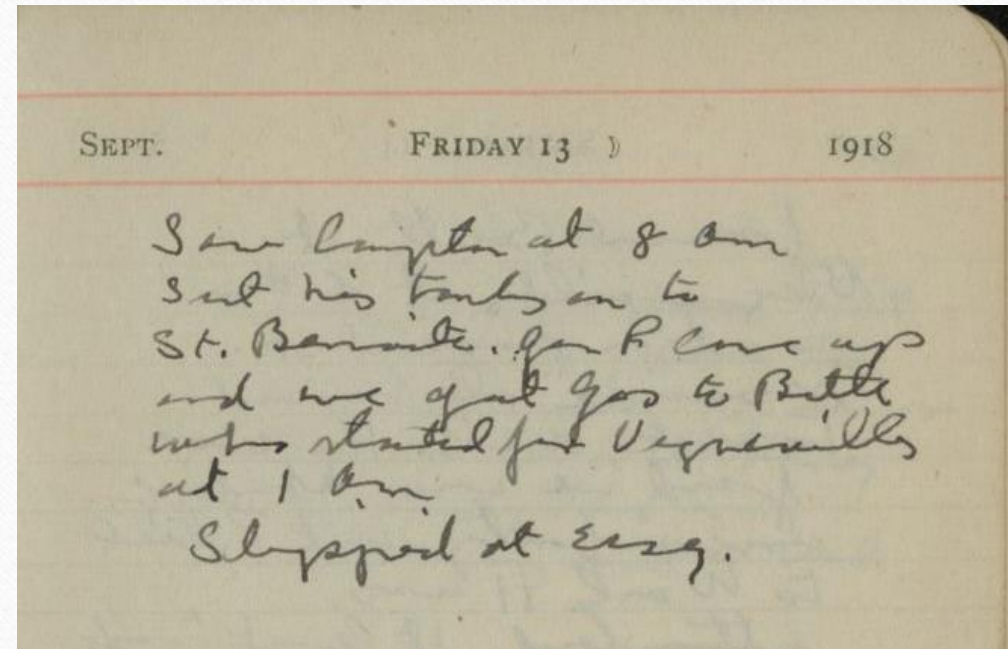 SEPT. FRIDAY 13 ☽ 1918
Saw Compton at 8 am
Sent his tanks on to
St. Benoite. Gen R came up
and we got gas to Britt
who started for Vigneulles
at 1 Am
at Essey.